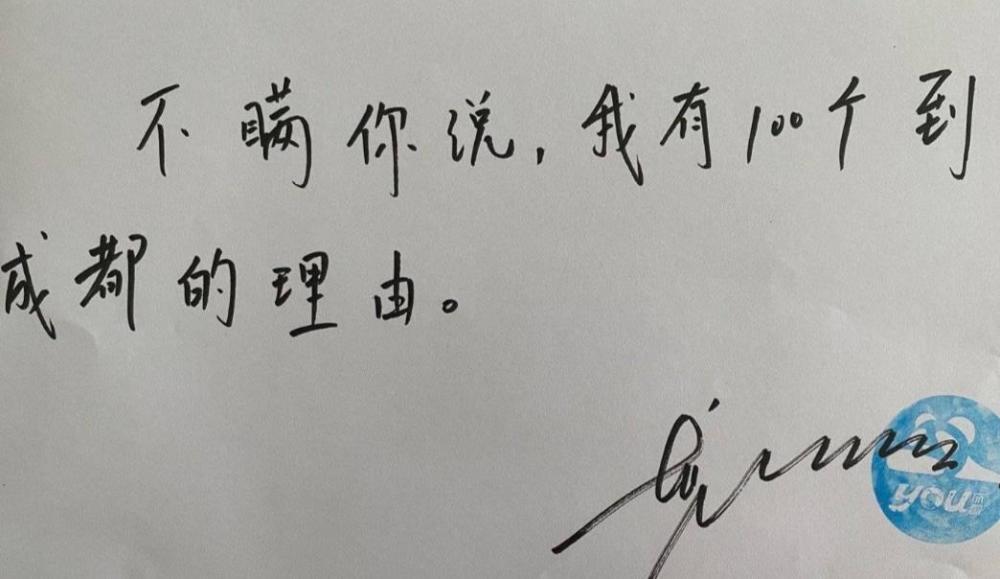 不瞒你说,我有100个到
成都的理由。
you